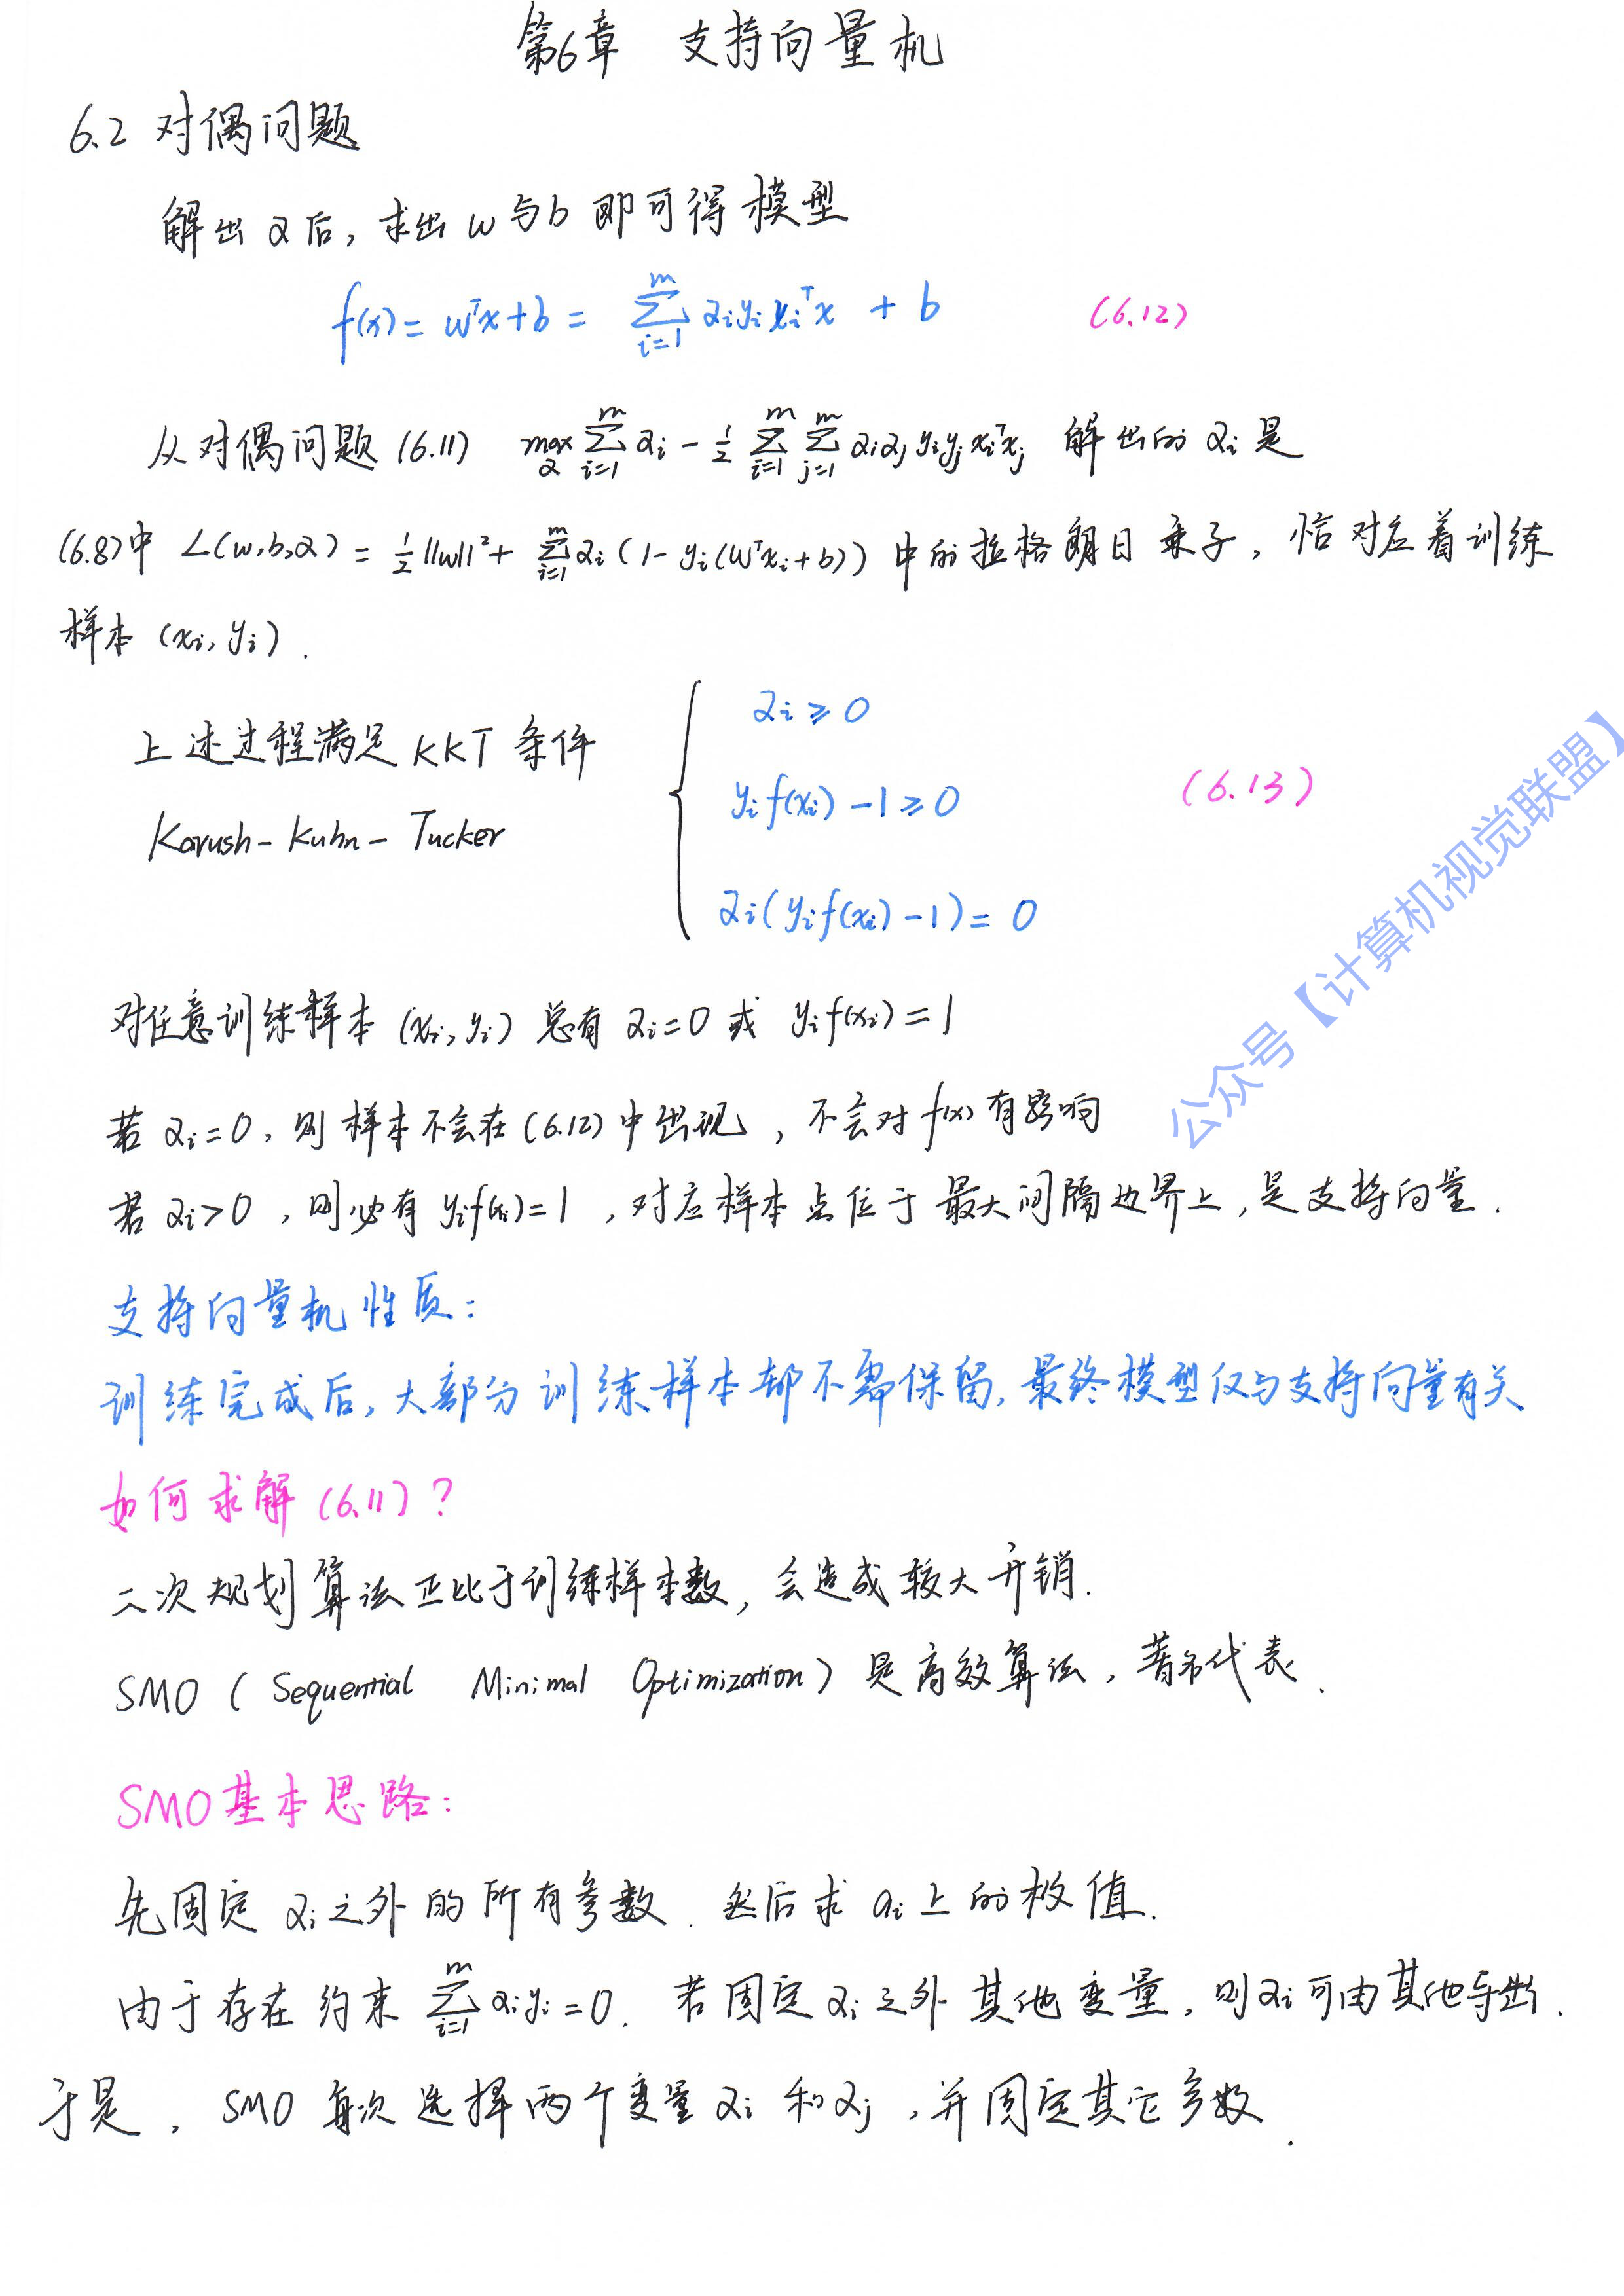 第6章 支持向量机
6.2 对偶问题
解出α后, 求出w与b即可得模型
f(x) = wᵀx+b = ∑ᵢ₌₁ᵐ αᵢyᵢxᵢᵀx + b (6.12)
从对偶问题(6.11) max_α ∑ᵢ₌₁ᵐ αᵢ - 1/2 ∑ᵢ₌₁ᵐ ∑ⱼ₌₁ᵐ αᵢαⱼyᵢyⱼxᵢᵀxⱼ 解出的αᵢ是
(6.8)中 L(w,b,α) = 1/2||w||² + ∑ᵢ₌₁ᵐ αᵢ(1-yᵢ(wᵀxᵢ+b)) 中的拉格朗日乘子, 恰对应着训练
样本(xᵢ, yᵢ).
上述过程满足KKT条件
Karush-Kuhn-Tucker
αᵢ ≥ 0
yᵢf(xᵢ) - 1 ≥ 0 (6.13)
αᵢ(yᵢf(xᵢ) - 1) = 0
对任意训练样本(xᵢ, yᵢ)总有αᵢ=0或 yᵢf(xᵢ) = 1
若αᵢ=0, 则样本不会在(6.12)中出现, 不会对f(x)有影响
若αᵢ>0, 则必有yᵢf(xᵢ)=1, 对应样本点位于最大间隔边界上, 是支持向量.
支持向量机性质:
训练完成后, 大部分训练样本都不需保留, 最终模型仅与支持向量有关
如何求解(6.11)?
二次规划算法正比于训练样本数, 会造成较大开销.
SMO (Sequential Minimal Optimization) 是高效算法, 著名代表.
SMO基本思路:
先固定αᵢ之外的所有参数. 然后求αᵢ上的极值.
由于存在约束 ∑ᵢ₌₁ᵐ αᵢyᵢ=0. 若固定αᵢ之外其他变量, 则αᵢ可由其他导出.
于是, SMO每次选择两个变量αᵢ和αⱼ, 并固定其它参数.
公众号【计算机视觉联盟】